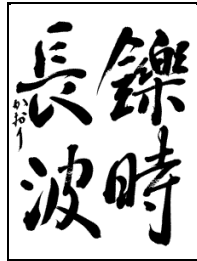 鑠時
長波
かおり